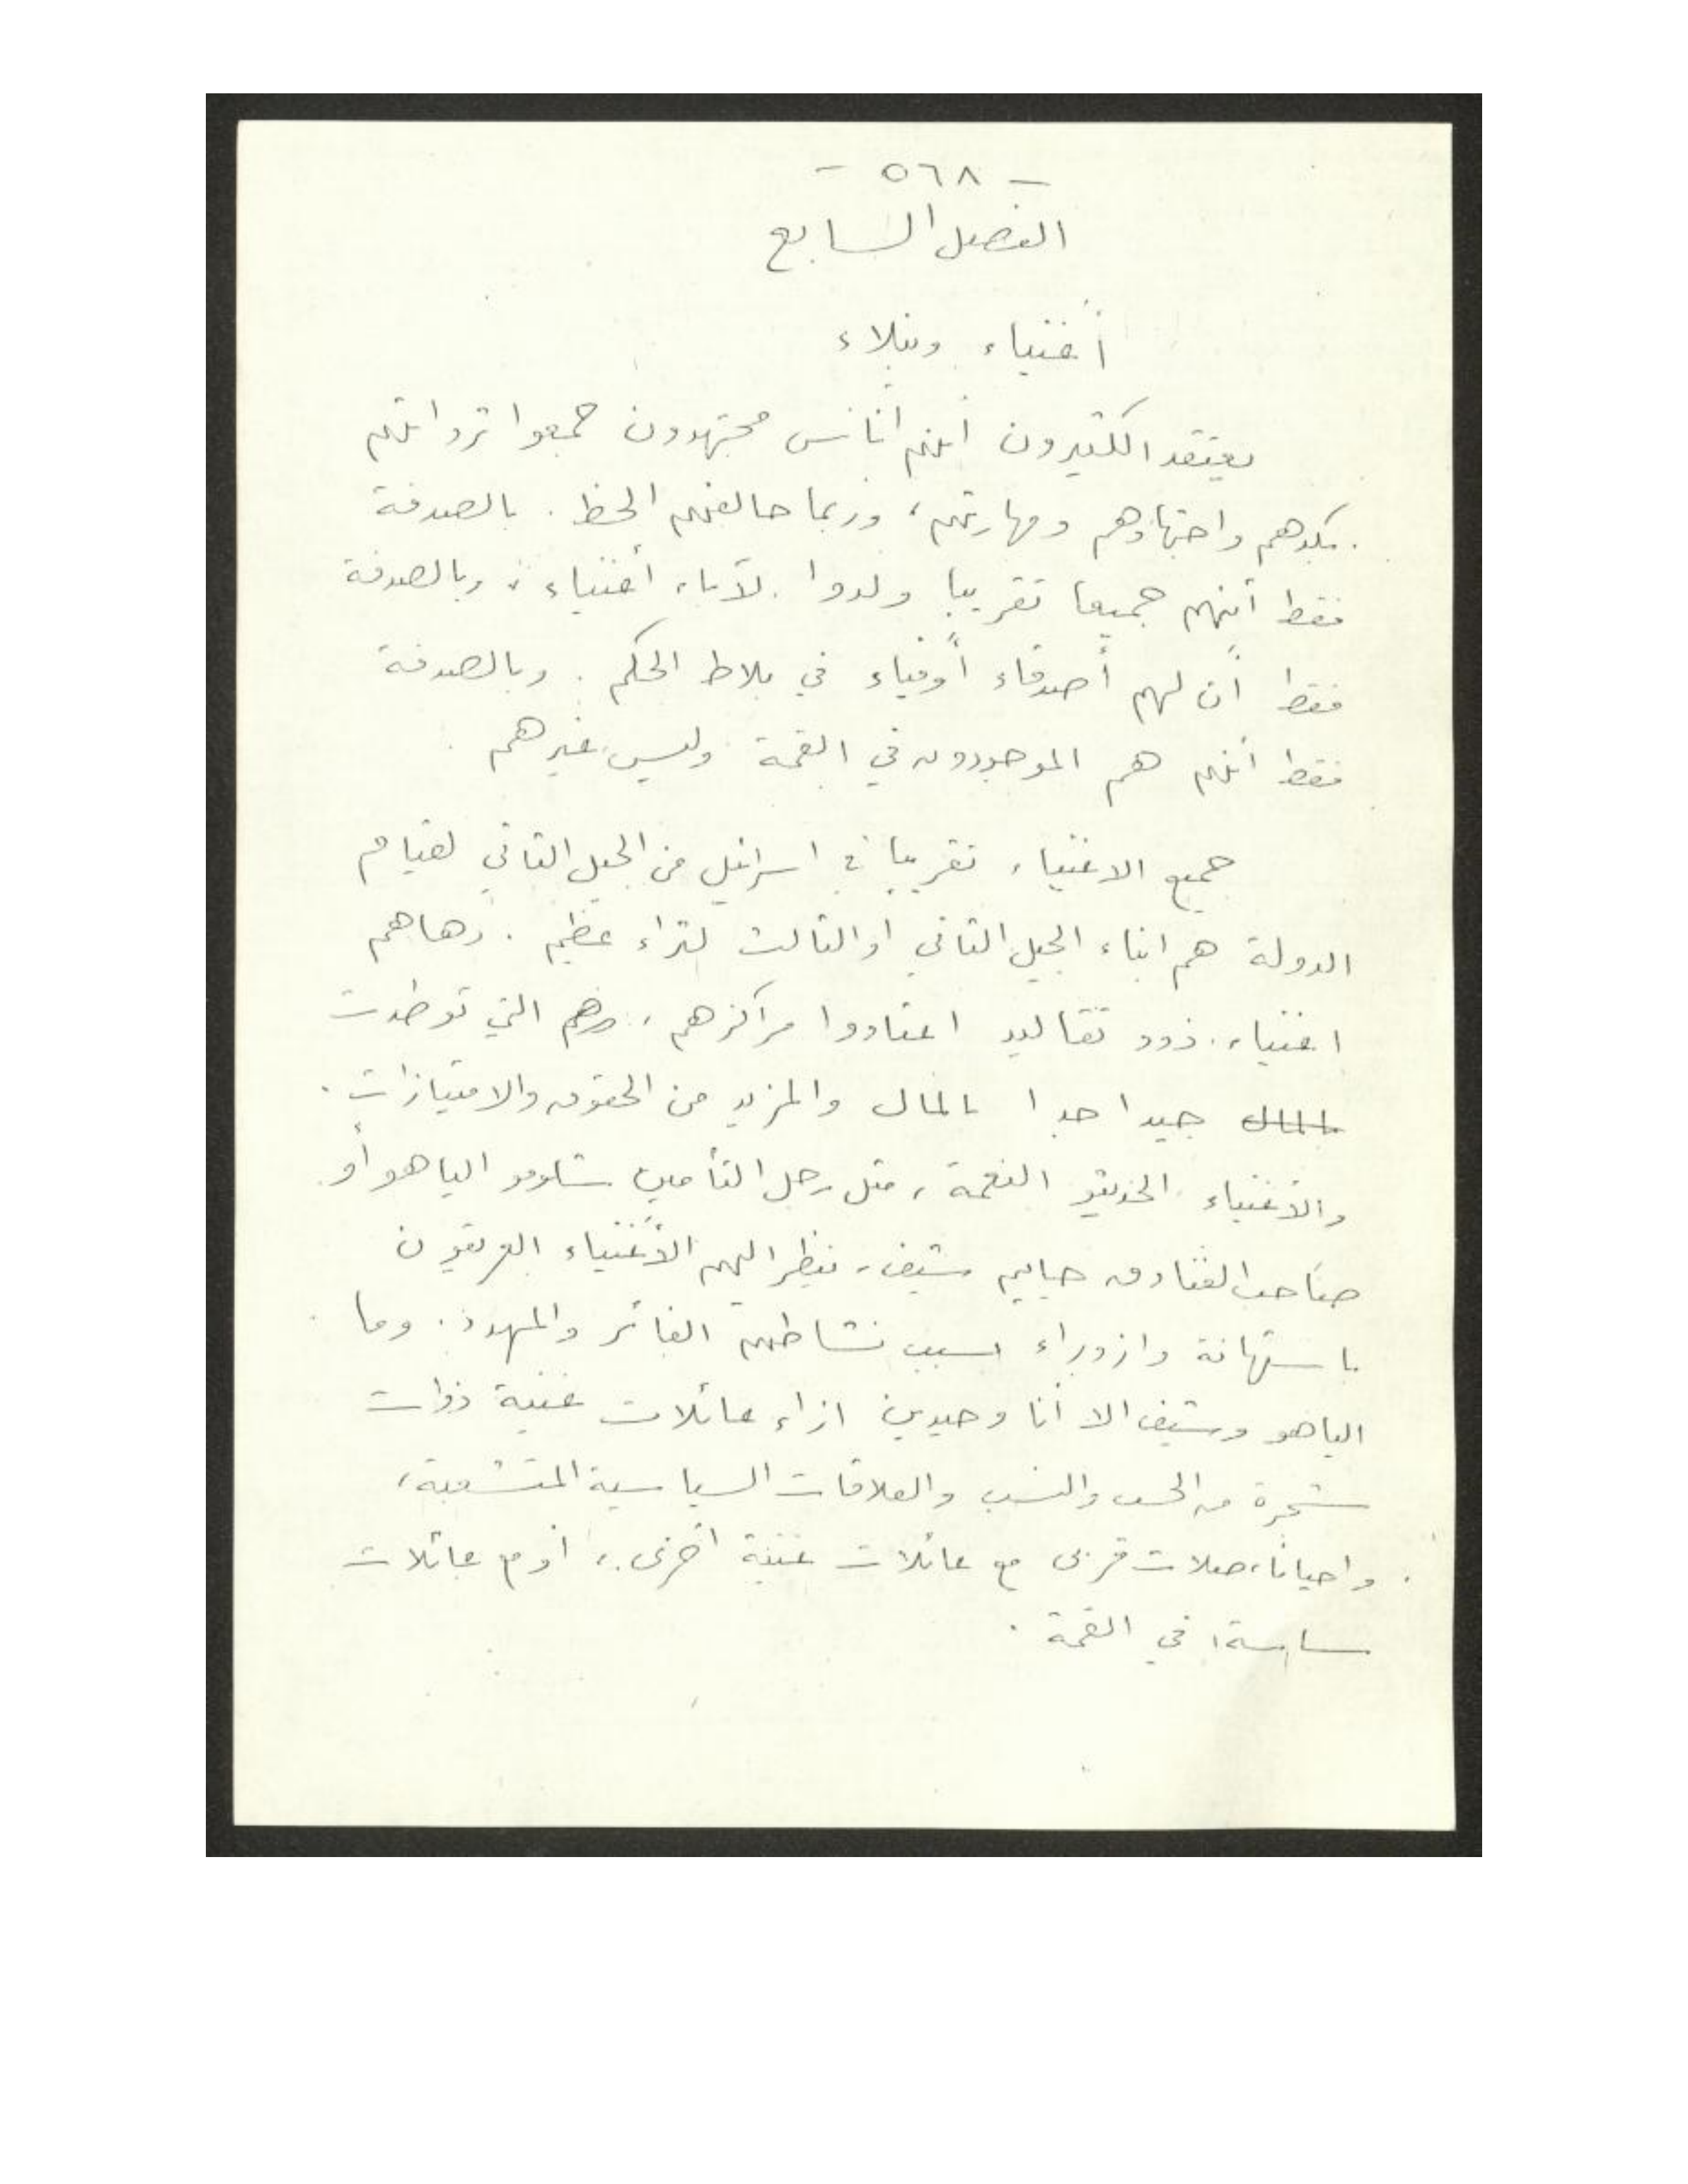 - ٥٦٨ -
الفصل السابع
أغنياء ونبلاء
يعتقد الكثيرون انهم أناس مجتهدون جمعوا ثرواتهم
بكدهم واجتهادهم ومهارتهم، وربما حالفهم الحظ. بالصدفة
فقط أنهم جميعا تقريبا ولدوا لآباء أغنياء، وبالصدفة
فقط أن لهم أصدقاء أوفياء في بلاط الحكم. وبالصدفة
فقط أنهم هم الموجودون في القمة وليس غيرهم.
جميع الاغنياء تقريبا في اسرائيل من الجيل الثاني لقيام
الدولة هم ابناء الجيل الثاني او الثالث لثراء عظيم. وها هم
اغنياء ذوو تقاليد اعتادوا مراكزهم، التي توطدت
جيدا جدا بالمال والمزيد من الحقوق والامتيازات.
والأغنياء الحديثو النعمة، مثل رجل التأمين شلومو الياهو أو
صاحب الفنادق حاييم شيف، ينظر اليهم الأغنياء العريقون
باستهانة وازوراء بسبب نشاطهم الفائر والمهدد. وما
الياهو وشيف الا أنا وحيدين ازاء عائلات غنية ذوات
شجرة من الحسب والنسب والعلاقات السياسية المتشعبة،
واحيانا صلات قربى مع عائلات غنية أخرى، أو مع عائلات
ساسة في القمة.